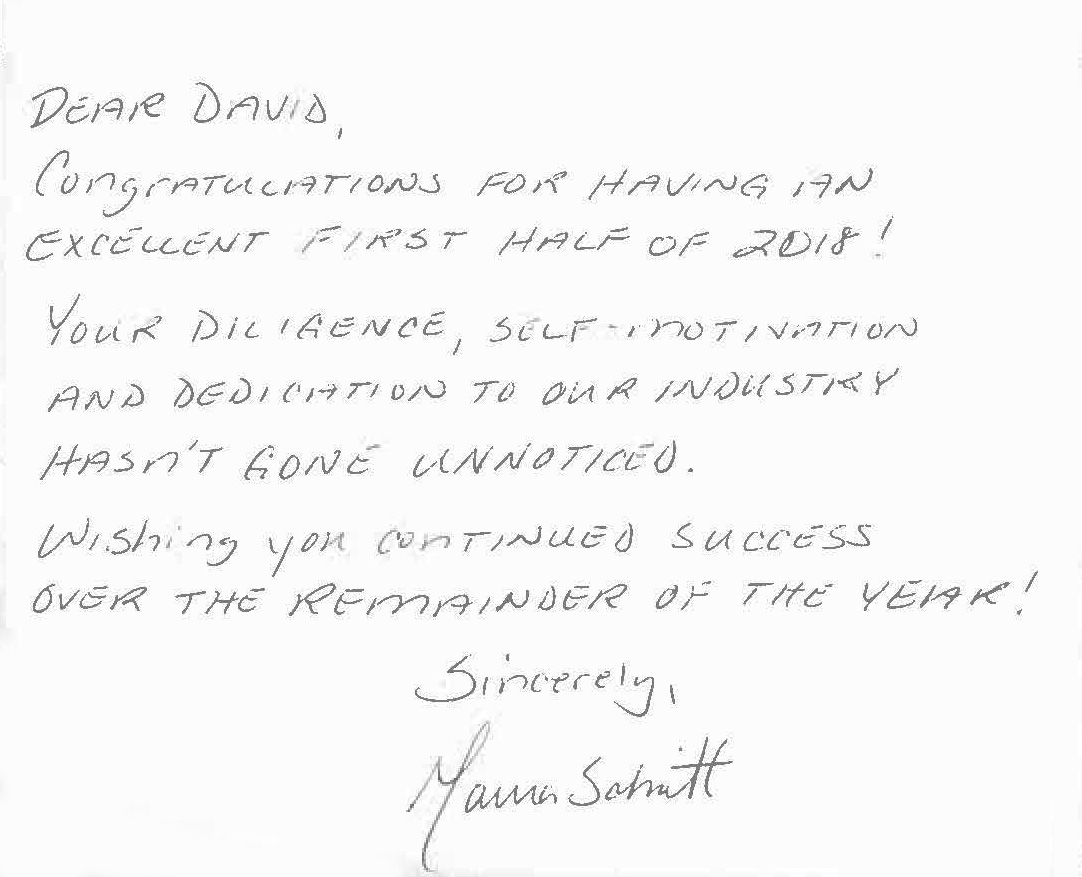 DEAR DAVID,
CONGRATULATIONS FOR HAVING AN
EXCELLENT FIRST HALF OF 2018!
YOUR DILIGENCE, SELF-MOTIVATION
AND DEDICATION TO OUR INDUSTRY
HASN'T GONE UNNOTICED.
WIShing you CONTINUED SUCCESS
OVER THE REMAINDER OF THE YEAR!
Sincerely,